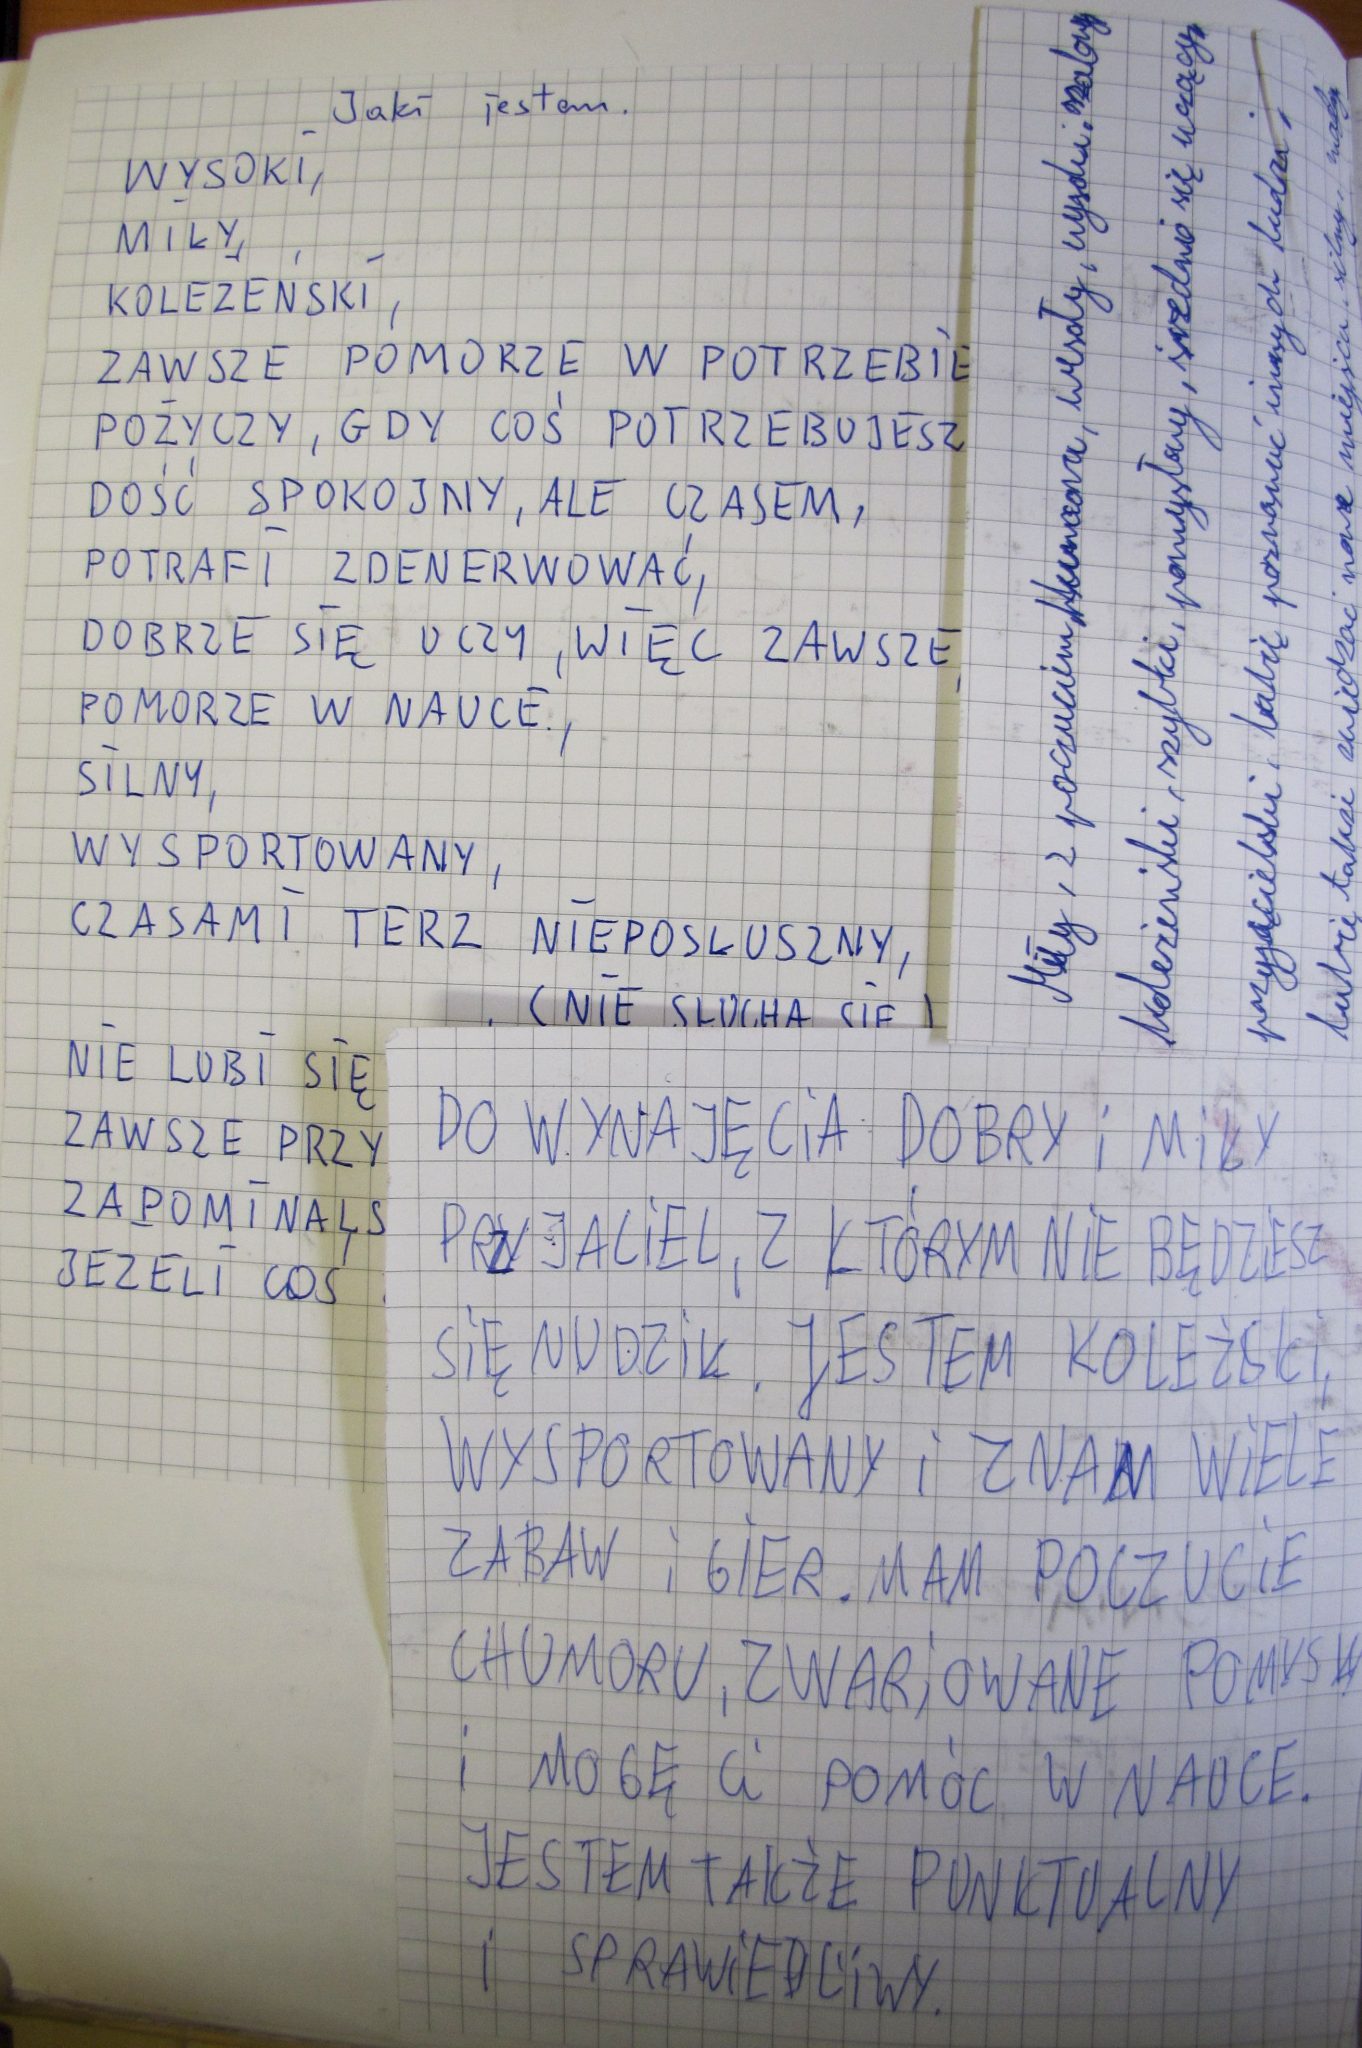 Jaki jestem.
WYSOKI,
MIŁY,
KOLEŻEŃSKI,
ZAWSZE POMORZE W POTRZEBIE
POŻYCZY, GDY COŚ POTRZEBUJESZ
DOŚĆ SPOKOJNY, ALE CZASEM,
POTRAFI ZDENERWOWAĆ,
DOBRZE SIĘ UCZY, WIĘC ZAWSZE
POMORZE W NAUCE.,
SILNY,
WYSPORTOWANY,
CZASAMI TERZ NIEPOSŁUSZNY,
(NIE SŁUCHA SIĘ)
NIE LUBI SIĘ
ZAWSZE PRZY
ZAPOMINALS
JEZELI COŚ
Miły, z poczuciem Humoru, wesoły, wysoki,
koleżeński, szybki, pomysłowy, średnio się uczący,
przyjacielski, lubię poznawać innych ludzi,
lubię także zwiedzać nowe miejsca, silny,
DO WYNAJĘCIA DOBRY i MiŁY
PRZYJACIEL, Z KTÓRYM NIE BĘDZIESZ
SIĘ NUDZIŁ. JESTEM KOLEŻSKI,
WYSPORTOWANY i ZNAM WIELE
ZABAW i GIER. MAM POCZUCIE
CHUMORU, ZWARIOWANE POMYSŁY
i MOGĘ Ci POMÓC W NAUCE.
JESTEM TAKŻE PUNKTUALNY
i SPRAWIEDLIWY.